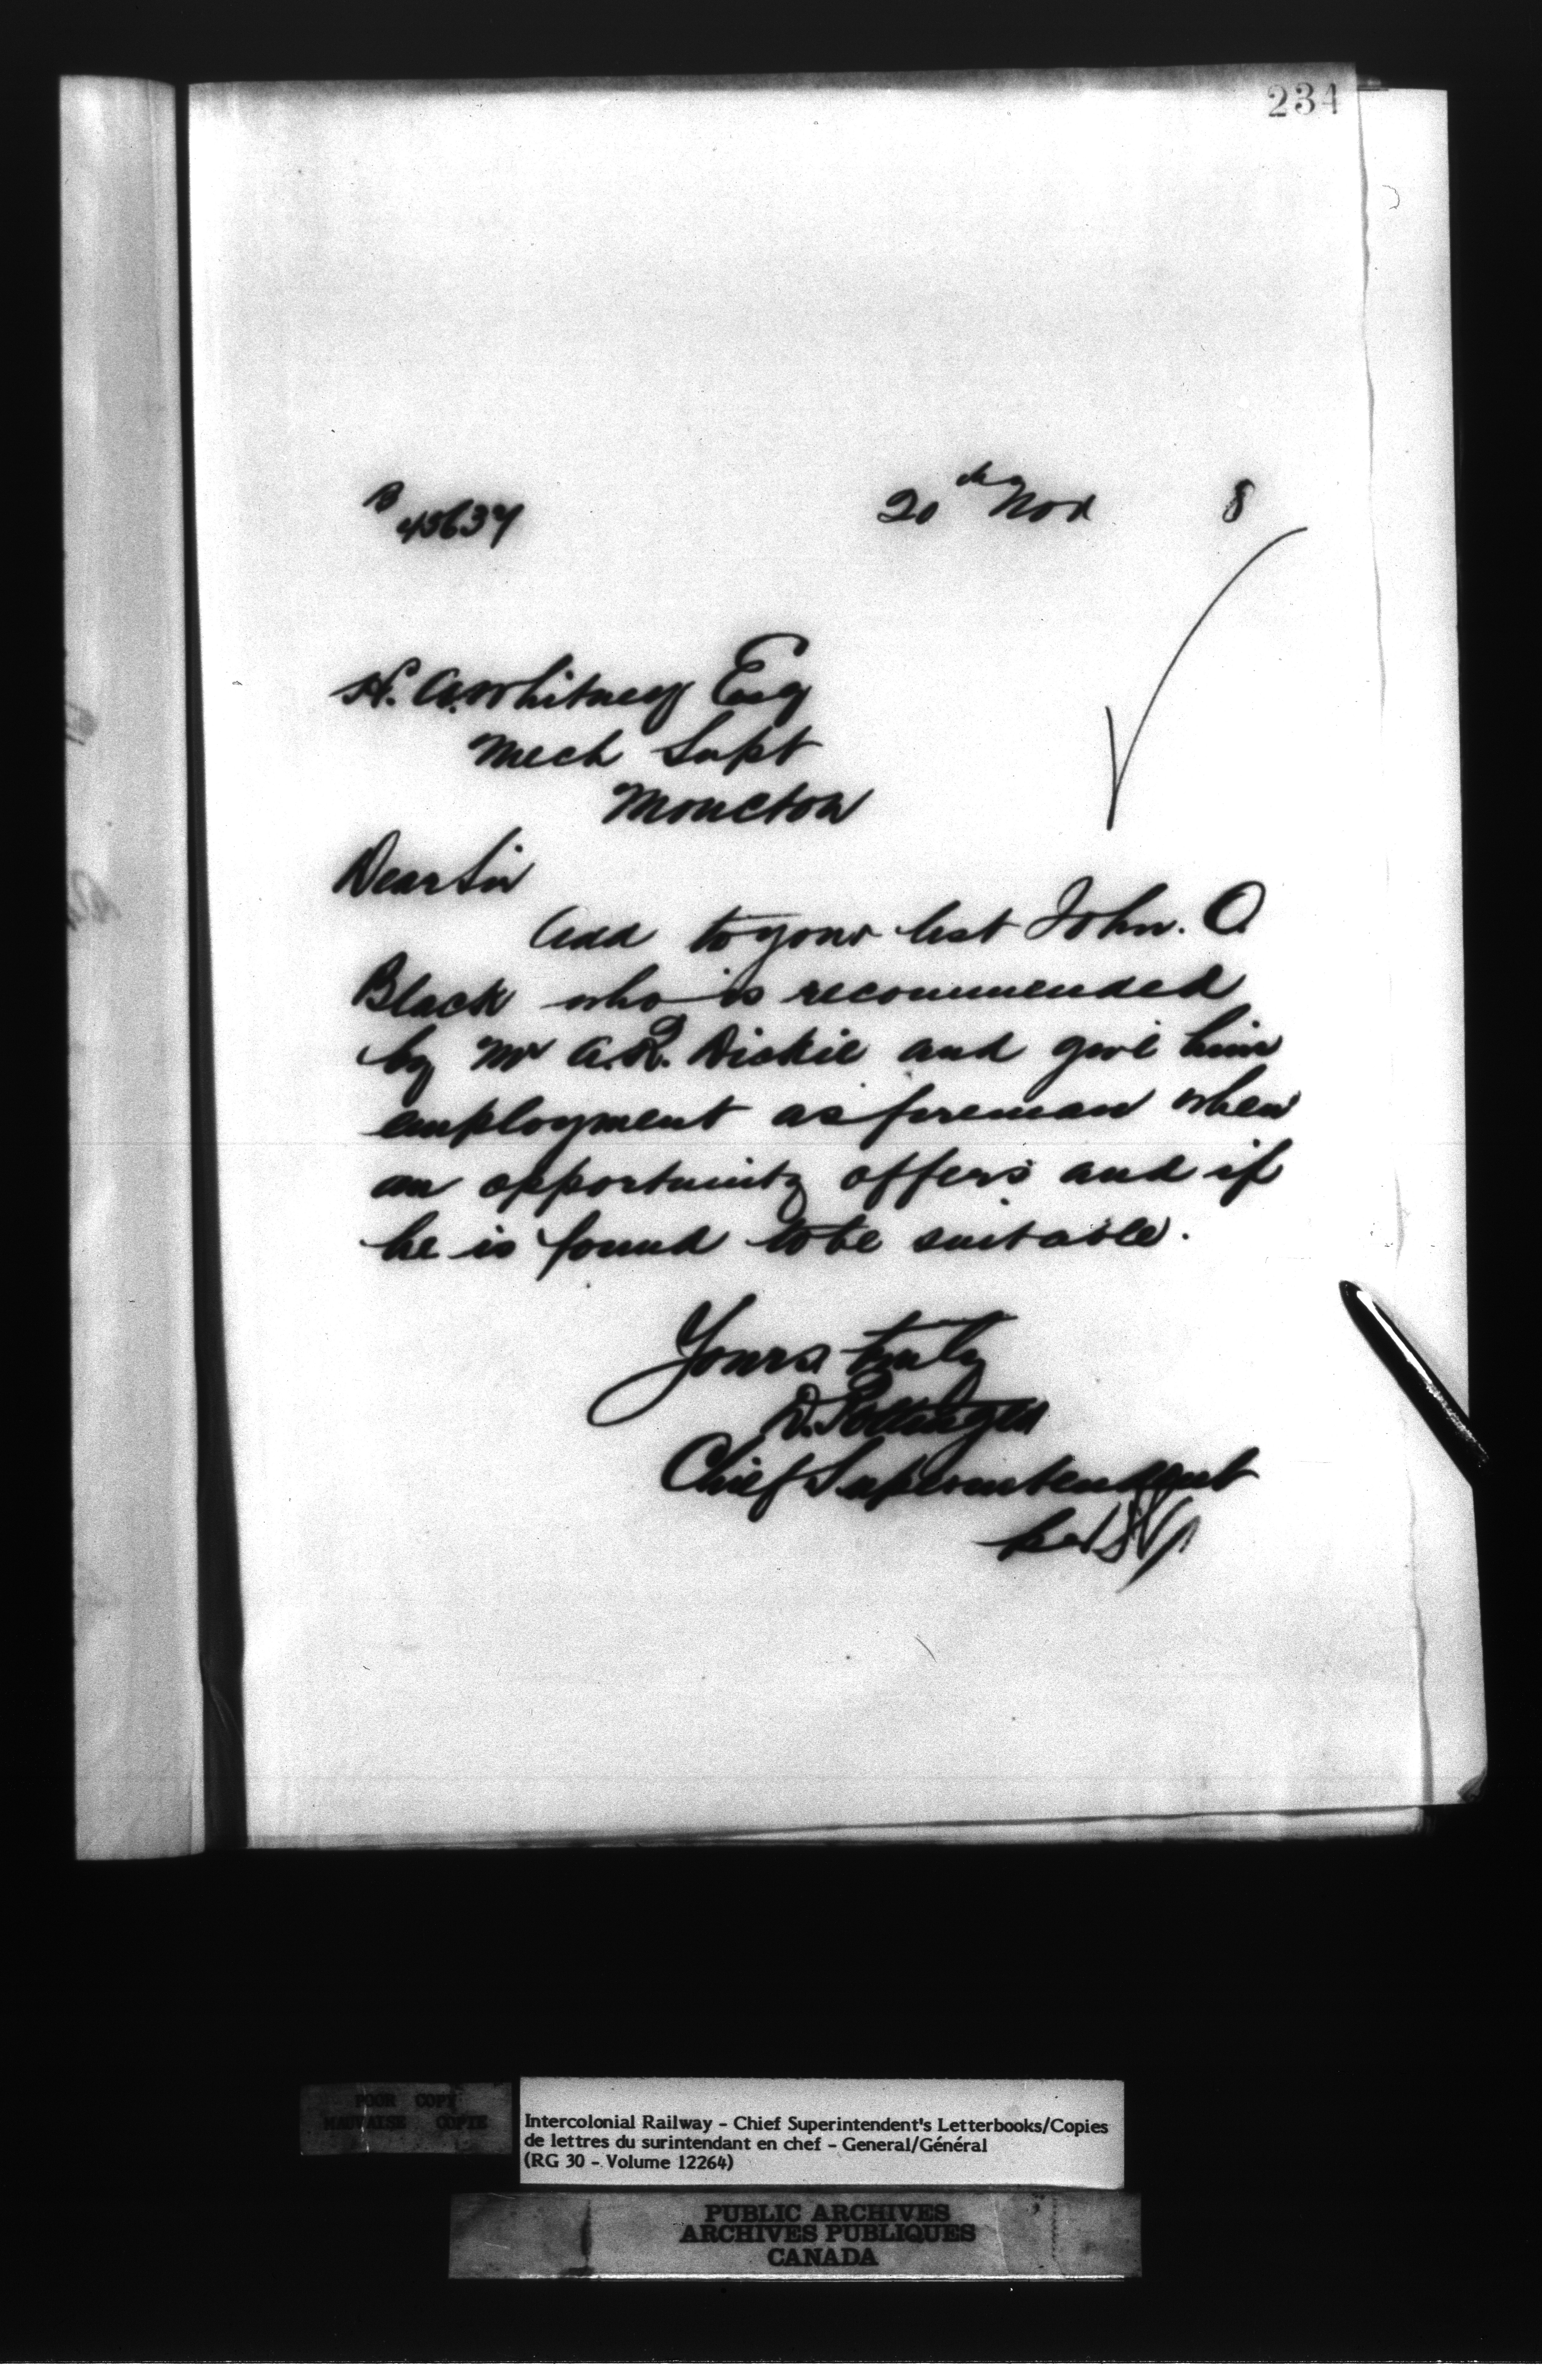 234
B 45637
20th Nov 8
H. A. Whitney Esq
Mech Supt
Moncton
Dear Sir
Add to your list John. O.
Black who is recommended
by Mr A. R. Dickie and give him
employment as fireman when
an opportunity offers and if
he is found to be suitable.
Yours truly
D. Pottinger
Chief Superintendent
POOR COPY
MAUVAISE COPIE
Intercolonial Railway - Chief Superintendent's Letterbooks/Copies
de lettres du surintendant en chef - General/Général
(RG 30 - Volume 12264)
PUBLIC ARCHIVES
ARCHIVES PUBLIQUES
CANADA